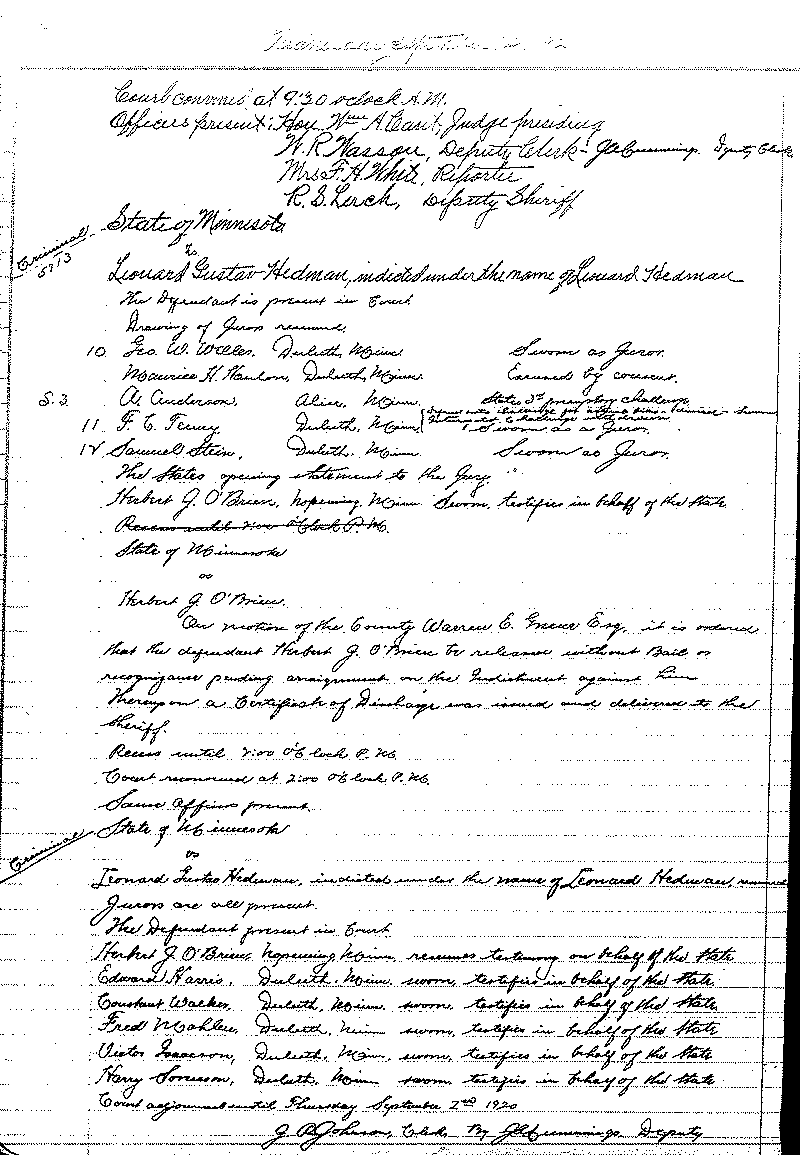 Wednesday September
Court convened at 9:30 oclock A.M.
Officers present: Hon Wm A. Cant, Judge presiding
W. R. Wasson, Deputy Clerk - J.E. Cummings Deputy Clerk
Mrs. F. H. White, Reporter
R. S. Lerch, Deputy Sheriff
State of Minnesota
Criminal
5713
vs
Leonard Gustav Hedman, indicted under the name of Leonard Hedman
The Defendant is present in Court
Drawing of Jurors resumed.
10. Geo. W. Welles. Duluth, Minn. Sworn as Juror.
Maurice H. Hanlon, Duluth, Minn. Excused by consent.
S. 3. Al Anderson. Alice, Minn. State's 3rd premptory challenge
11. F. C. Tenny Duluth, Minn. Sworn as a Juror.
12 Samuel Stein. Duluth, Minn. Sworn as Juror.
The States opening statement to the Jury
Herbert J. O'Brien, Nopeming, Minn. Sworn, testifies in behalf of the State
Recess until 2:00 O'Clock P.M.
State of Minnesota
vs
Herbert J. O'Brien.
On motion of the County Warren E. Greene Esq. it is ordered
that the defendant Herbert J. O'Brien be released without Bail or
recognizance pending arraignment on the Indictment against him
Thereupon a Certificate of Discharge was issued and delivered to the
Sheriff.
Recess until 2:00 O'Clock P.M.
Court reconvened at 2:00 O'Clock P.M.
Same Officers present
State of Minnesota
Criminal
vs
Leonard Gustav Hedman, indicted under the name of Leonard Hedman, resumed
Jurors are all present.
The Defendant present in Court
Herbert J. O'Brien, Nopeming Minn. resumes testimony on behalf of the State
Edward Harris, Duluth, Minn. sworn, testifies in behalf of the State
Constant Walker, Duluth, Minn. sworn, testifies in behalf of the State
Fred Mahlen, Duluth, Minn sworn, testifies in behalf of the State
Victor Isaacson, Duluth, Minn, sworn, testifies in behalf of the State
Harry Sorenson, Duluth, Minn sworn testifies in behalf of the State
Court adjourned until Thursday September 2nd 1920
J P Johnson, Clerk By J E Cummings Deputy